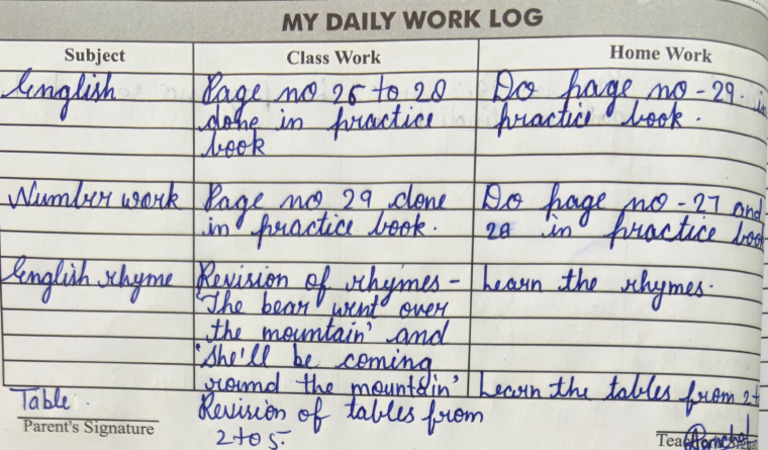 MY DAILY WORK LOG
Subject Class Work Home Work
English Page no 26 to 28 Do page no - 29. in
done in practice practice book.
book
Number work Page no 29 done Do page no - 27 and
in practice book. 28 in practice book
English rhyme Revision of rhymes - Learn the rhymes.
'The bear went over
the mountain' and
'She'll be coming
round the mountain' Learn the tables from 2 
Table. Revision of tables from
Parent's Signature 2 to 5.